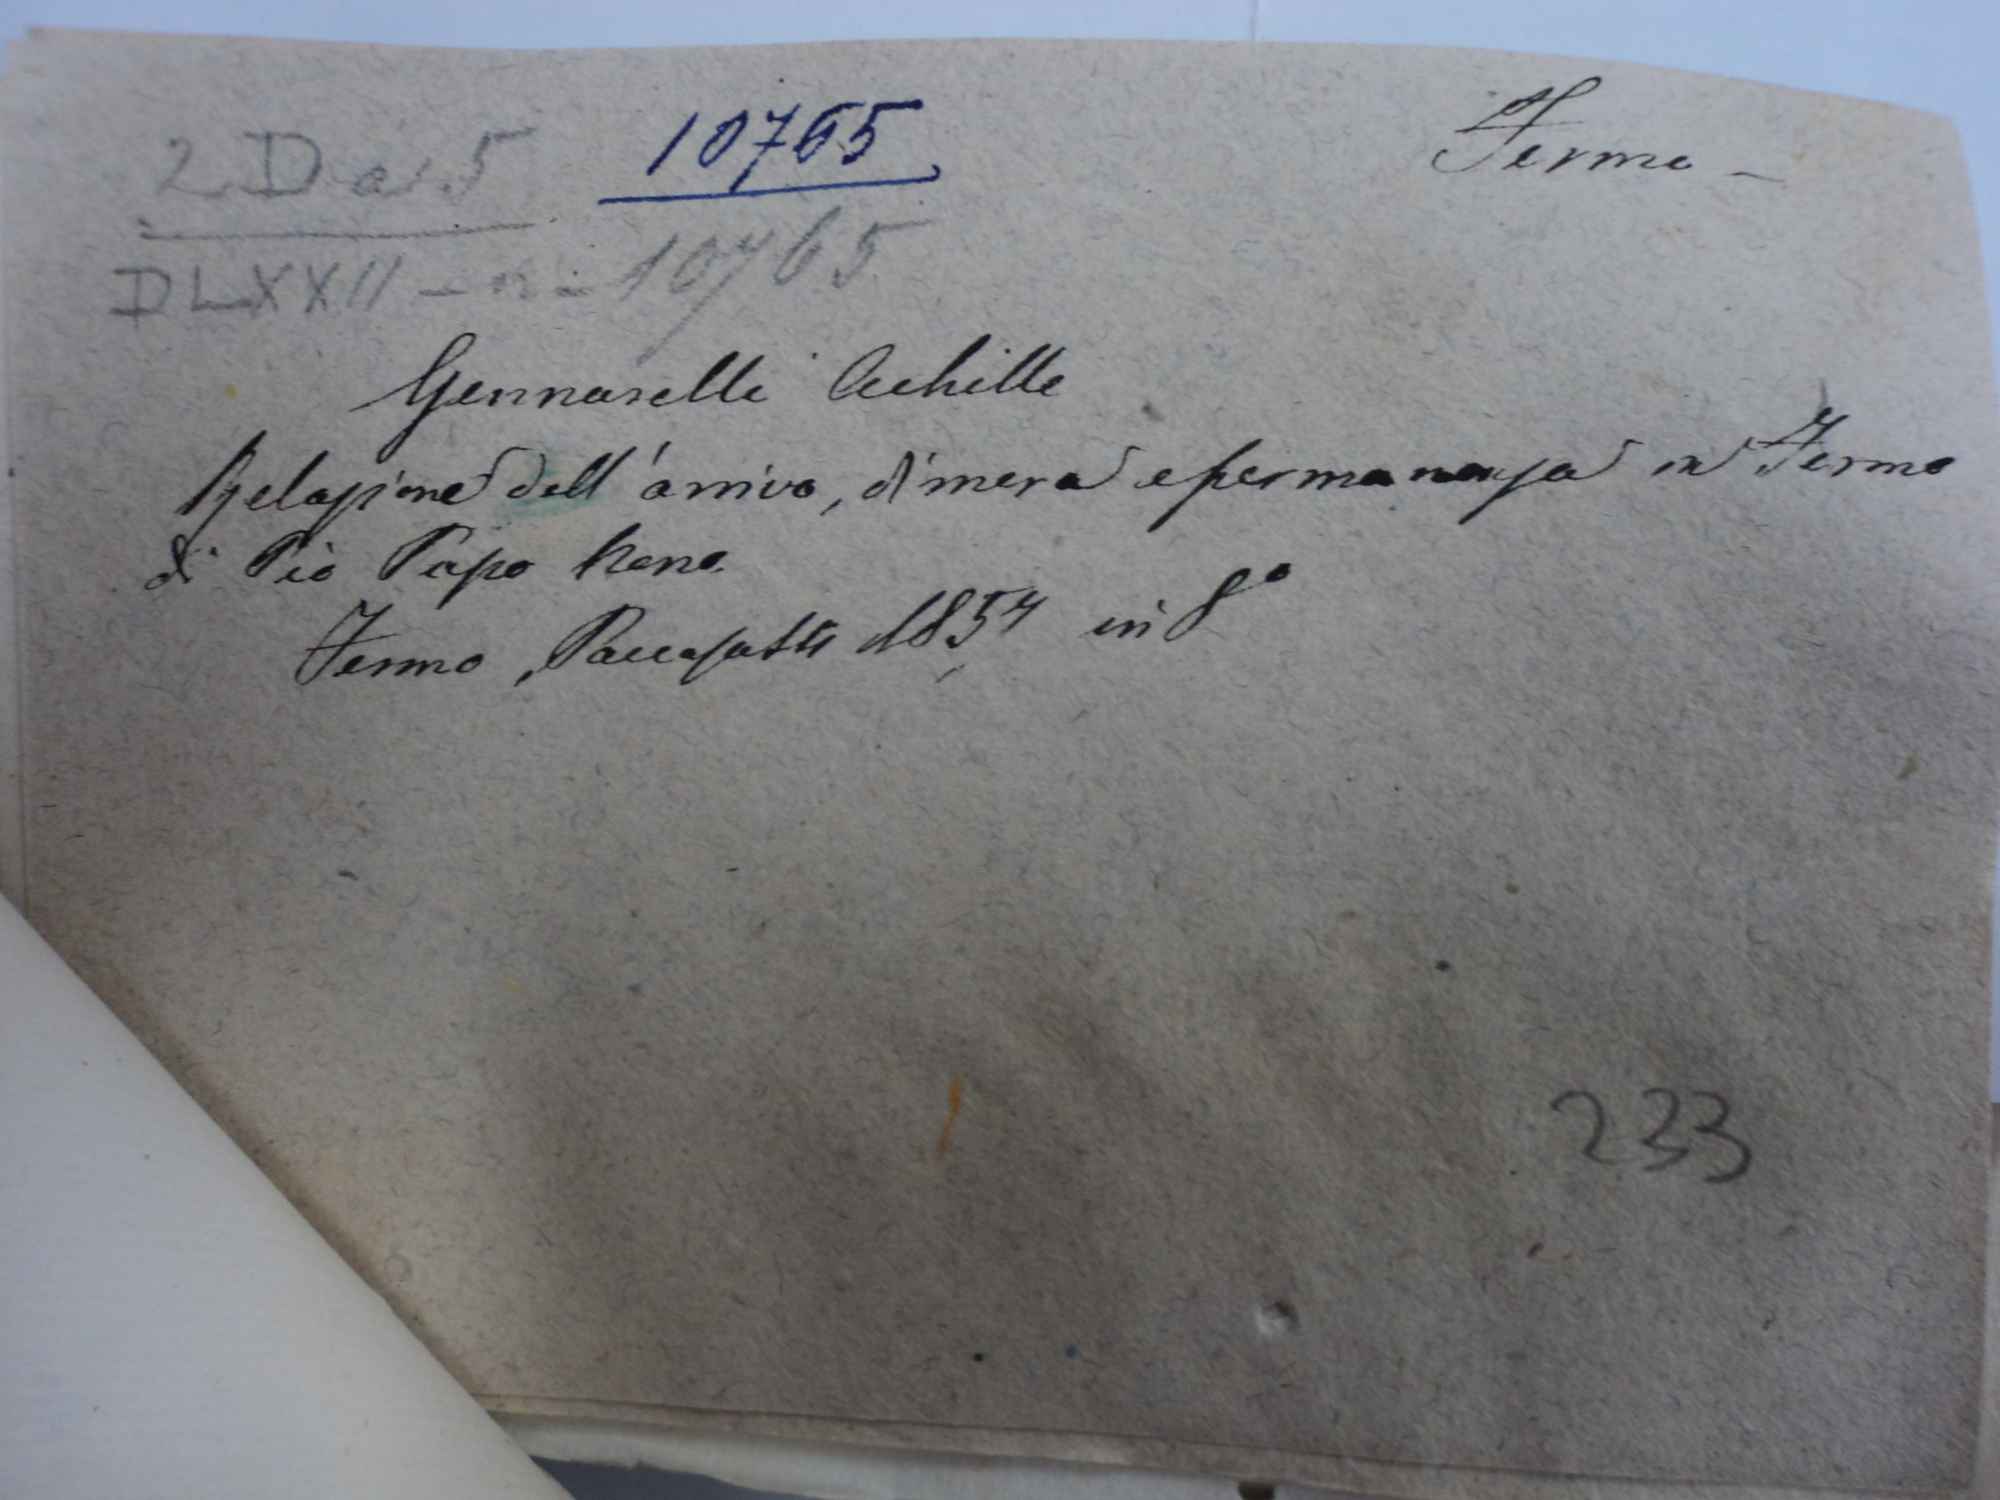 2 D a 5
10765
Fermo -
DLXXII - n - 10765
Gennarelli Achille
Relazione dell' arrivo, dimora e permanenza in Fermo
di Pio Papa Nono
Fermo, Paccasassi 1857 in 8º
233